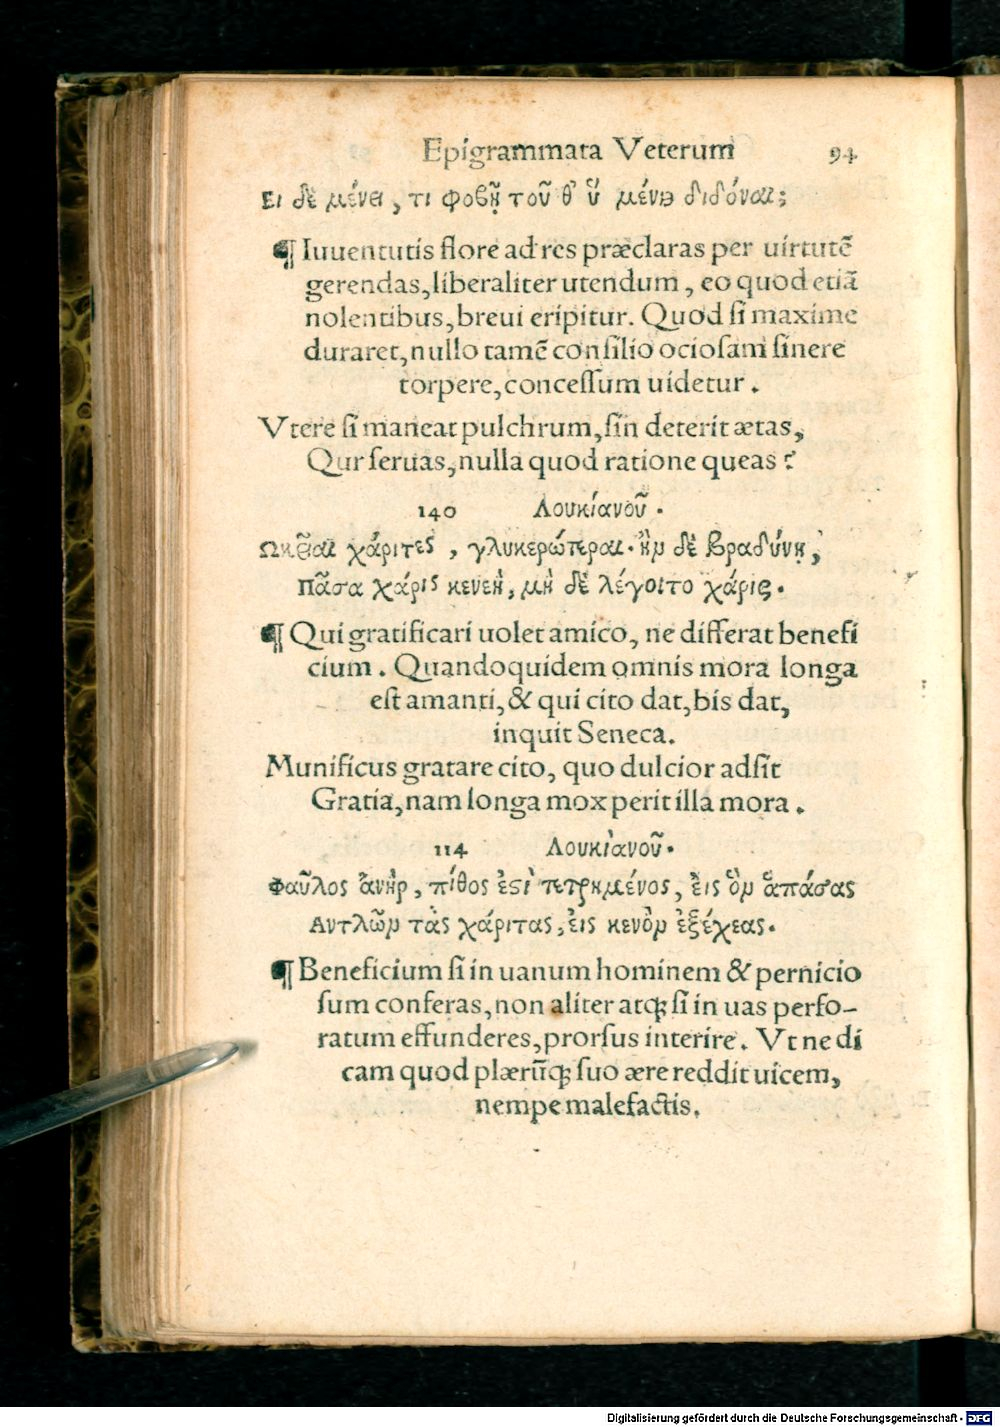 Epigrammata Veterum 94
Ει δὲ μένει, τι φοβῇ τοῦ θ' ὃ μένει διδόναι;
¶ Iuuentutis flore ad res præclaras per uirtutē
gerendas, liberaliter utendum, eo quod etiā
nolentibus, breui eripitur. Quod si maxime
duraret, nullo tamē consilio ociosam sinere
torpere, concessum uidetur.
Vtere si maneat pulchrum, sin deterit ætas,
Qur seruas, nulla quod ratione queas?
140 Λουκίανοῦ.
Ωκεῖαι χάριτες, γλυκερώτεραι. ἢν δὲ βραδύνῃ,
πᾶσα χάρις κενεὴ, μὴ δὲ λέγοιτο χάρις.
¶ Qui gratificari uolet amico, ne differat benefi
cium. Quandoquidem omnis mora longa
est amanti, & qui cito dat, bis dat,
inquit Seneca.
Munificus gratare cito, quo dulcior adsit
Gratia, nam longa mox perit illa mora.
114 Λουκιἀνοῦ.
Φαῦλος ἄνὴρ, πίθος ἐςὶ τετρημένος, ἐις ὃν ἁπάσας
Αντλῶν τὰς χάριτας, ἐις κενὸν ἐξέχεας.
¶ Beneficium si in uanum hominem & pernicio
sum conferas, non aliter atqꝫ si in uas perfo-
ratum effunderes, prorsus interire. Vt ne di
cam quod plærūqꝫ suo ære reddit uicem,
nempe malefactis.
Digitalisierung gefördert durch die Deutsche Forschungsgemeinschaft - DFG